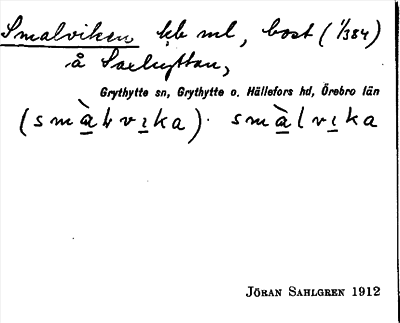 Smalviken lb ml, bost (1/384)
å Saxhyttan,
Grythytte sn, Grythytte o. Hällefors hd, Örebro län
(smàlvika) smàlvika
JÖRAN SAHLGREN 1912